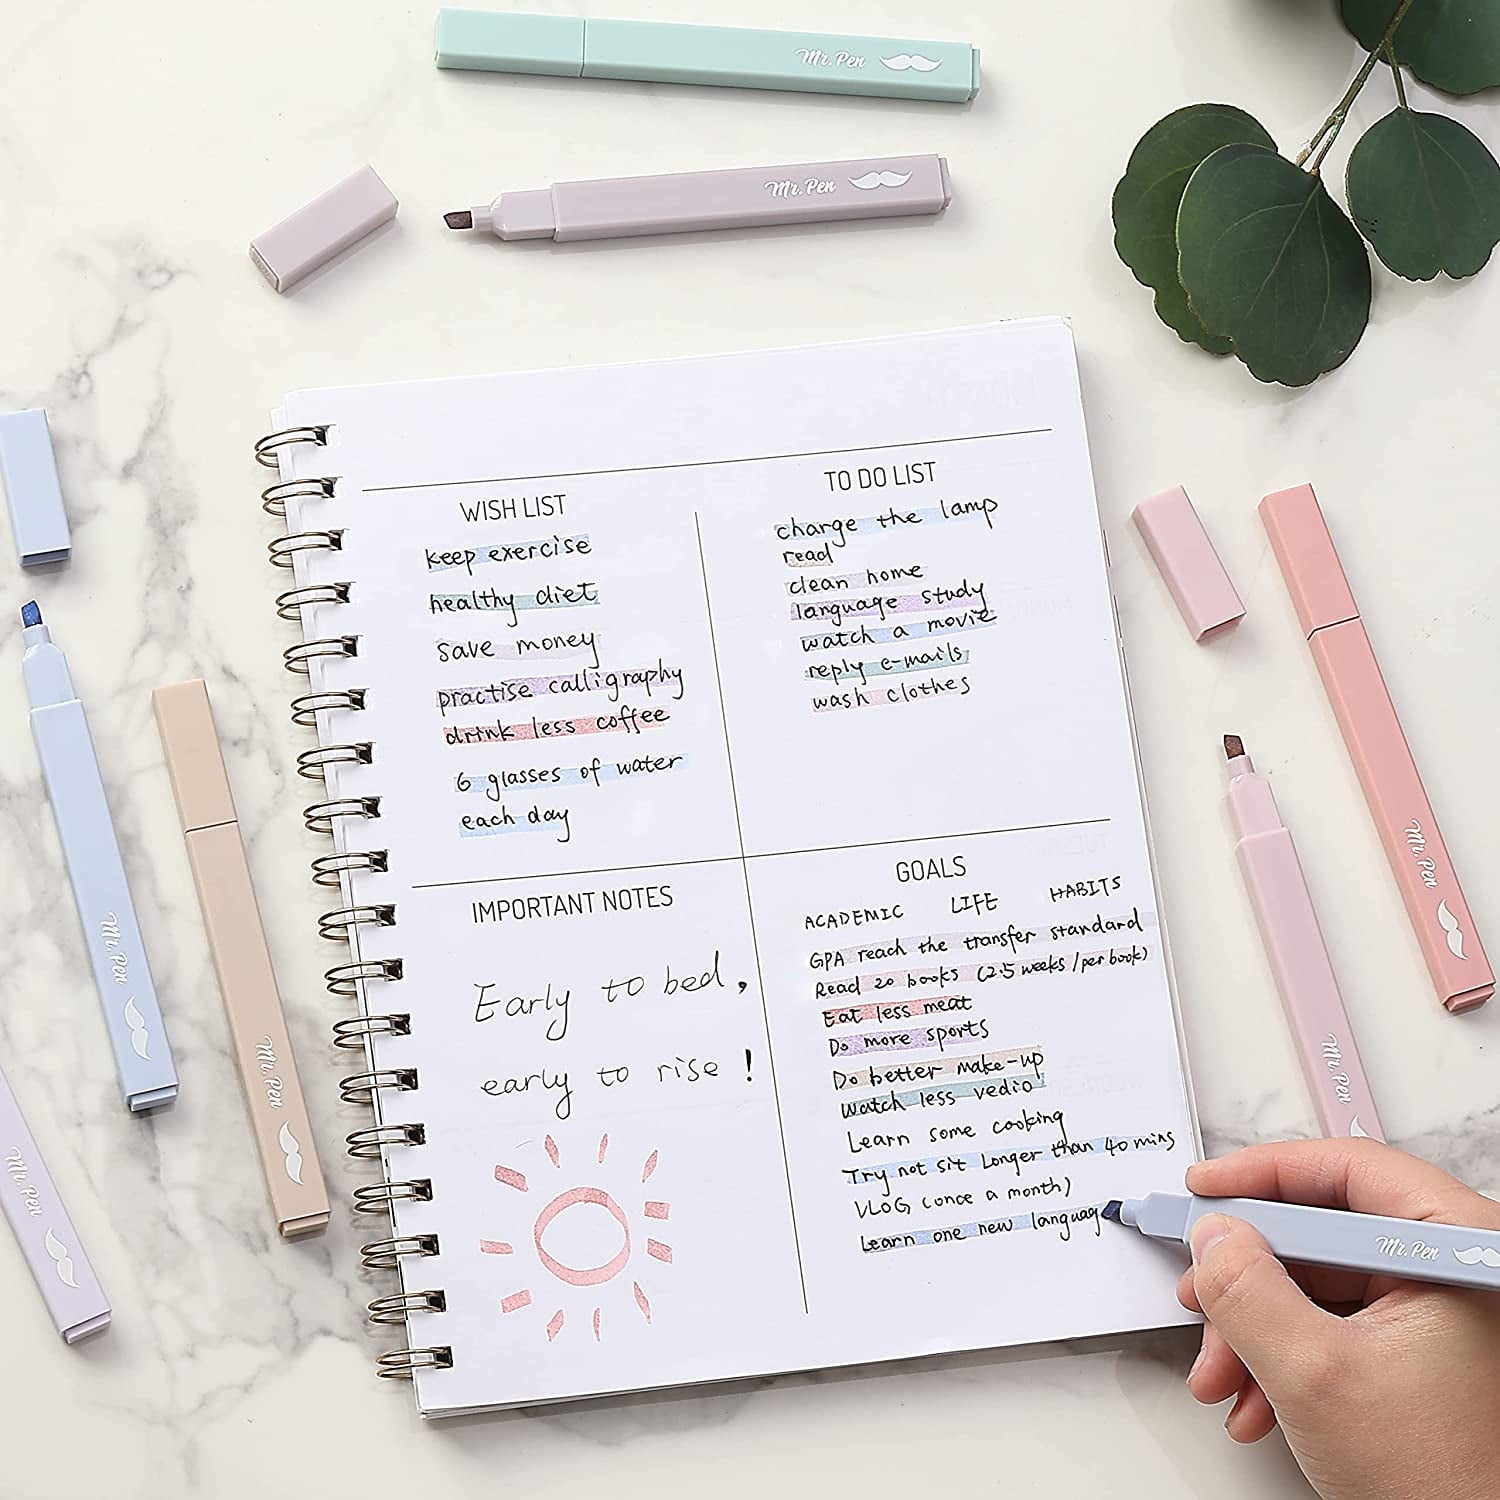 Mr. Pen
Mr. Pen
WISH LIST
keep exercise
healthy diet
save money
practise calligraphy
drink less coffee
6 glasses of water
each day
TO DO LIST
charge the lamp
read
clean home
language study
watch a movie
reply e-mails
wash clothes
IMPORTANT NOTES
Early to bed,
early to rise!
GOALS
ACADEMIC LIFE HABITS
GPA reach the transfer standard
Read 20 books (2.5 weeks/per book)
Eat less meat
Do more sports
Do better make-up
Watch less vedio
Learn some cooking
Try not sit longer than 40 mins
VLOG (once a month)
Learn one new languag
Mr. Pen
Mr. Pen
Mr. Pen
Mr. Pen
Mr. Pen
Mr. Pen